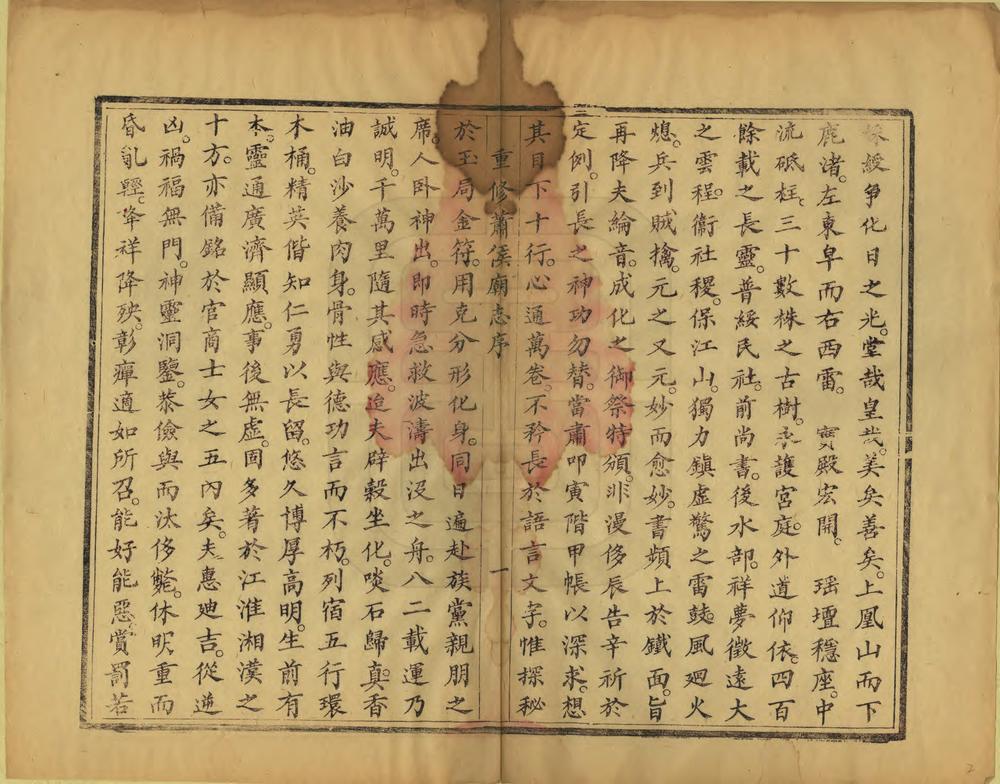 綏爭化日之光。堂哉皇哉。美矣善矣。上凰山而下
鹿渚。左東皐而右西雷。寳殿宏開。瑶壇穩座。中
流砥柱。三十數株之古樹。永護宮庭。外道仰依。四百
餘載之長靈。普綏民社。前尚書。後水部。祥夢徵遠大
之雲程。衞社稷。保江山。獨力鎮虛驚之雷鼓。風廻火
熄。兵到賊擒。元之又元。妙而愈妙。書頻上於鐵面。旨
再降夫綸音。成化之御祭特頒。非漫侈辰告辛祈於
定例。引長之神功勿替。當肅叩寅階甲帳以深求。想
其目下十行。心通萬卷。不矜長於語言文字。惟探秘
重修蕭侯廟志序
一
於玉局金符。用克分形化身。同日遍赴族黨親朋之
席。人卧神出。即時急救波濤出沒之舟。八二載運乃
誠明。千萬里隨其感應。迨夫辟榖坐化。啖石歸真。香
油白沙養肉身。骨性與德功言而不朽。列宿五行環
木桶。精英偕知仁勇以長留。悠久博厚高明。生前有
本。靈通廣濟顯應。事後無虛。固多著於江淮湘漢之
十方。亦備銘於官商士女之五內矣。夫惠廸吉。從逆
凶。禍福無門。神靈洞鑒。恭儉與而汰侈斃。休明重而
昏亂輕。降祥降殃。彰癉適如所召。能好能惡賞罰若